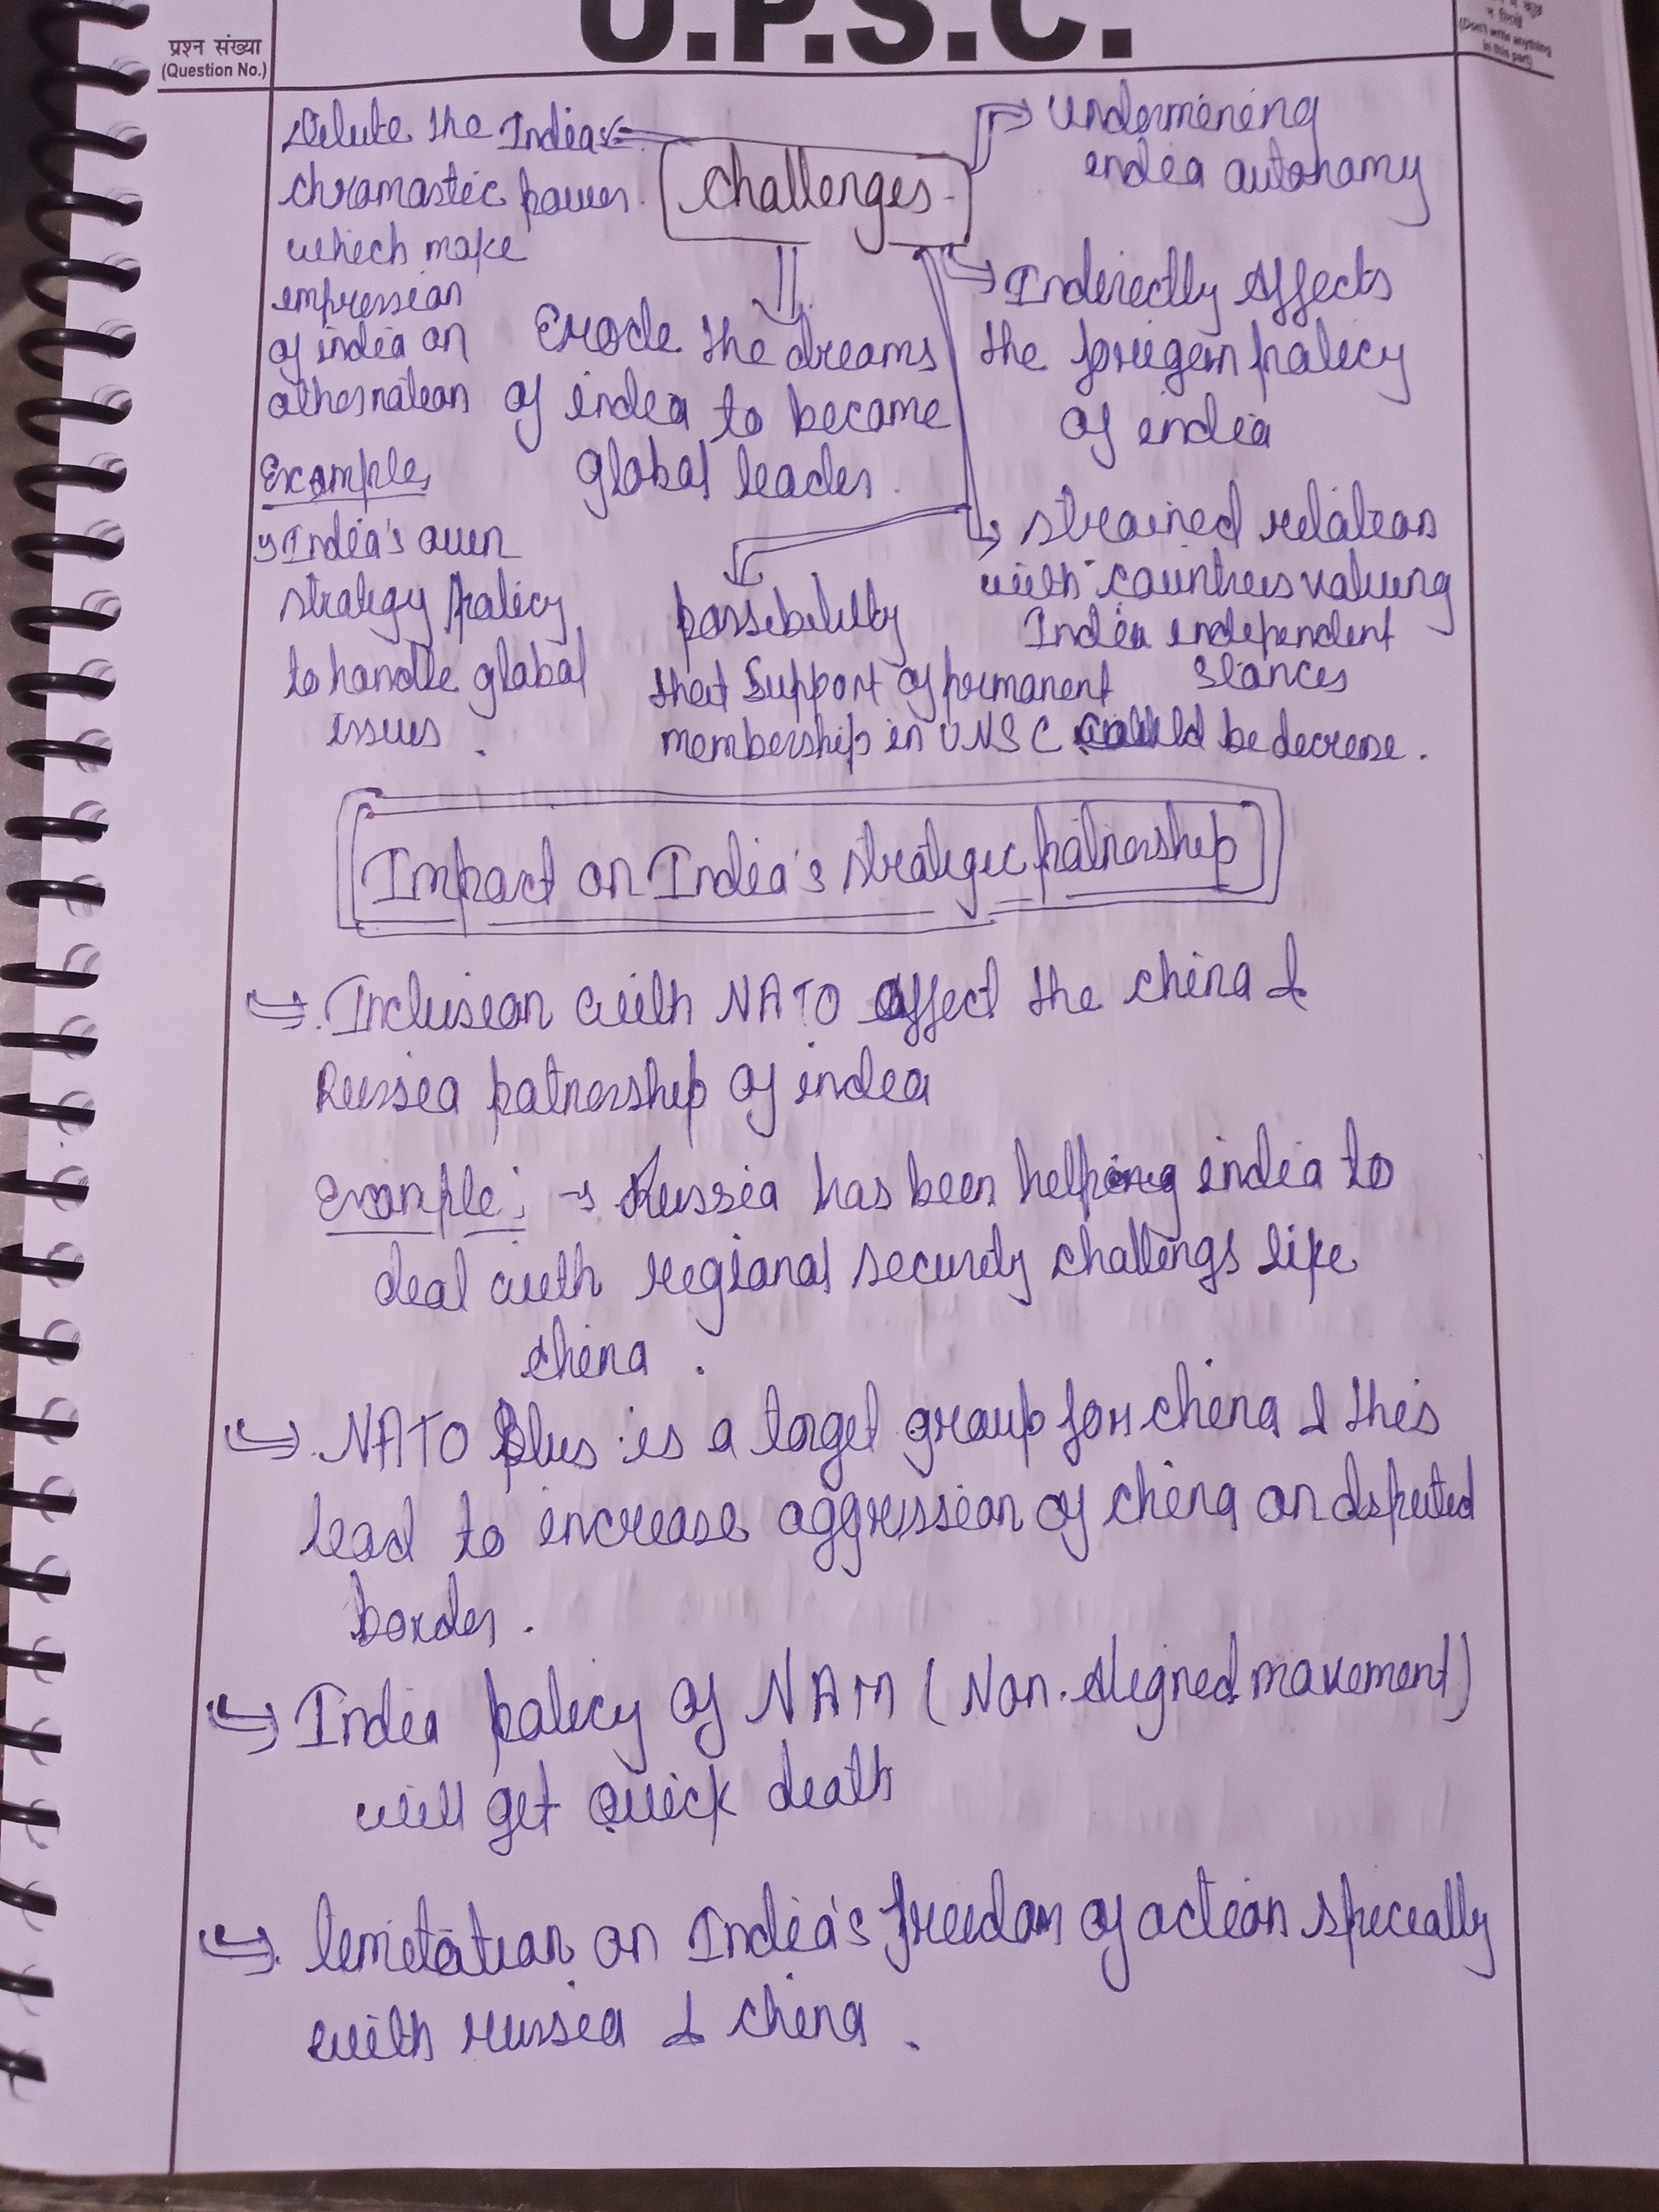 U.P.S.C.
प्रश्न संख्या
(Question No.)
(Don't write anything
in this part)
Dilute the India
chromastic power
which make
impression
of india on
other nation
Example
India's own
strategy policy
to handle global
issues .
Challenges
Undermining
india autonomy
Indirectly affects
the foriegn policy
of india
Erode the dreams
of india to become
global leader .
strained relation
with countries valuing
India independent
stances
possibility
that support of permanent
membership in UNSC could be decrease .
Impact on India's strategic patnership
Inclusion with NATO affect the china &
Russia patnership of india
Example : → Russia has been helping india to
deal with regional security challengs like
china .
NATO Plus is a target group for china & this
lead to increase aggression of china on disputed
border .
India policy of NAM ( Non-Aligned movement )
will get quick death
limitation on India's freedom of action specially
with russia & china .